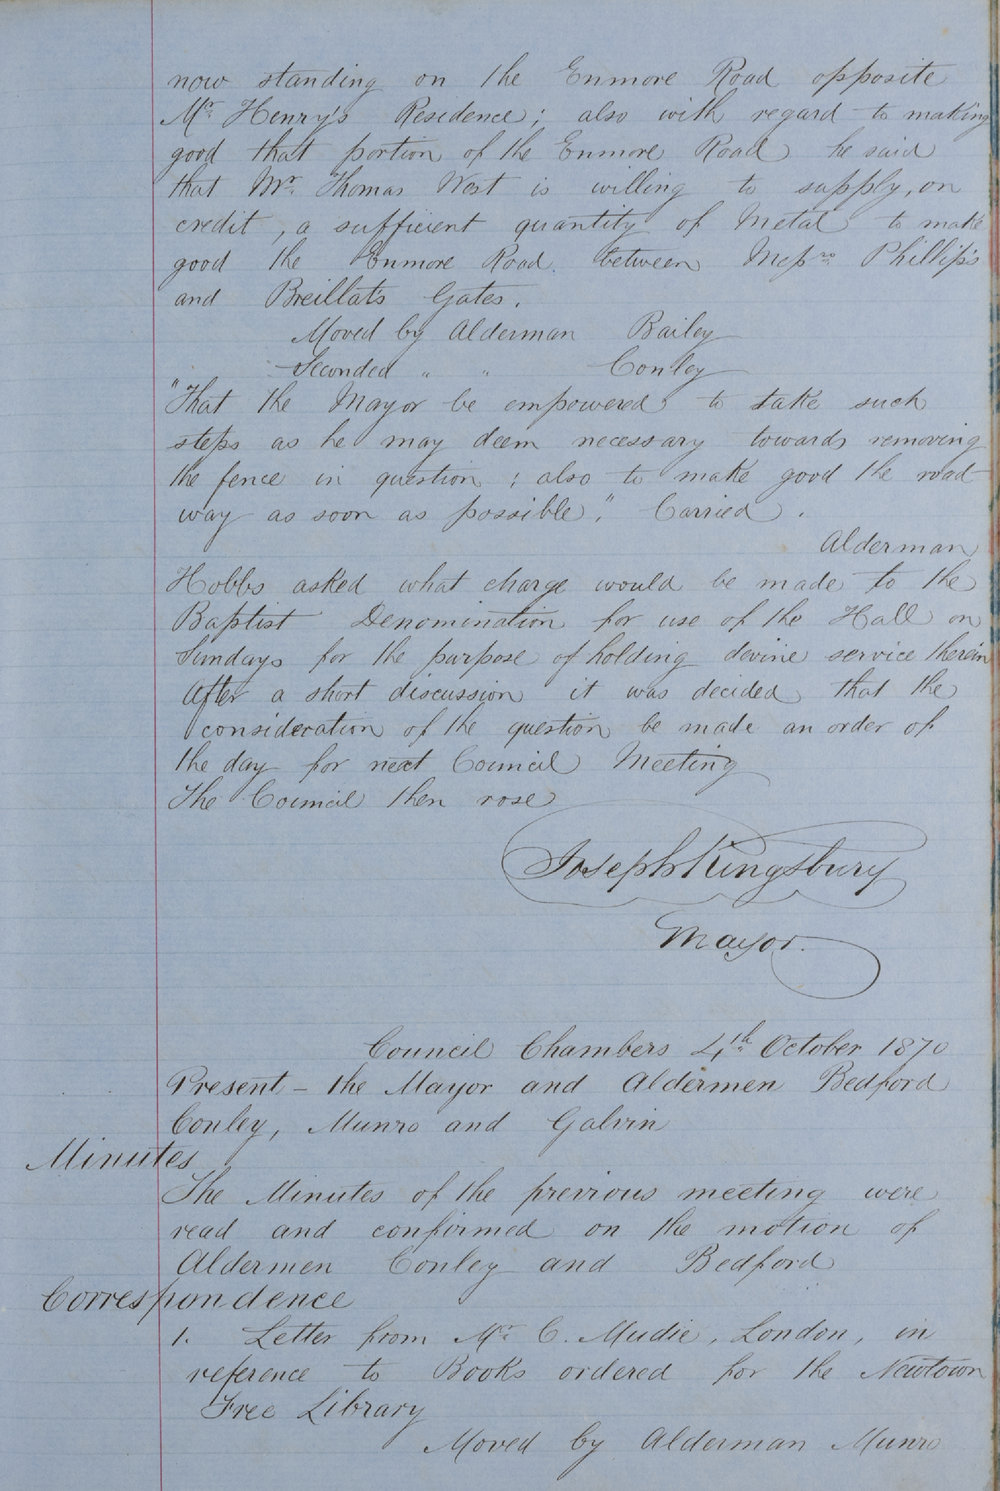 now standing on the Enmore Road opposite
Mr. Henry's Residence; also with regard to making
good that portion of the Enmore Road he said
that Mr. Thomas West is willing to supply, on
credit, a sufficient quantity of Metal to make
good the Enmore Road between Messrs Phillips
and Breillats Gates.
Moved by Alderman Bailey
Seconded " " Conley
"That the Mayor be empowered to take such
steps as he may deem necessary towards removing
the fence in question; also to make good the road-
way as soon as possible". Carried.
Alderman
Hobbs asked what charge would be made to the
Baptist Denomination for use of the Hall on
Sundays for the purpose of holding devine service therein
After a short discussion it was decided that the
consideration of the question be made an order of
the day for next Council Meeting
The Council then rose
Joseph Kingsbury
Mayor.
Council Chambers 4th October 1870
Present - the Mayor and Aldermen Bedford
Conley, Munro and Galvin
Minutes
The Minutes of the previous meeting were
read and confirmed on the motion of
Aldermen Conley and Bedford
Correspondence
1. Letter from Mr. C. Mudie, London, in
reference to Books ordered for the Newtown
Free Library
Moved by Alderman Munro